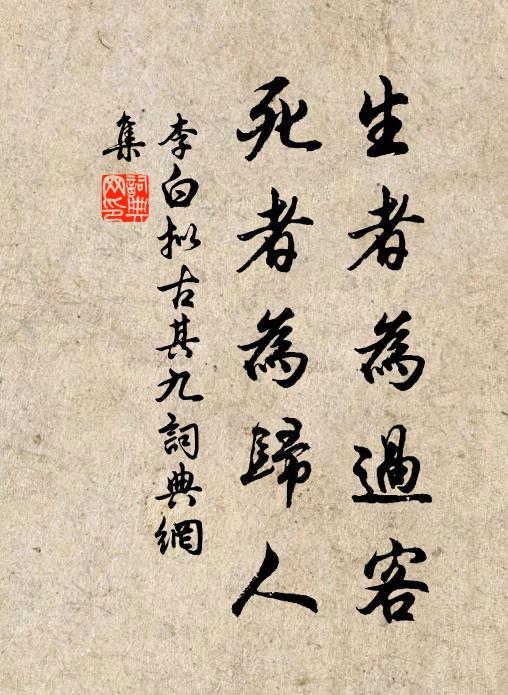 生者為過客
死者為歸人
李白拟古其九詞典網
集
詞典
网印